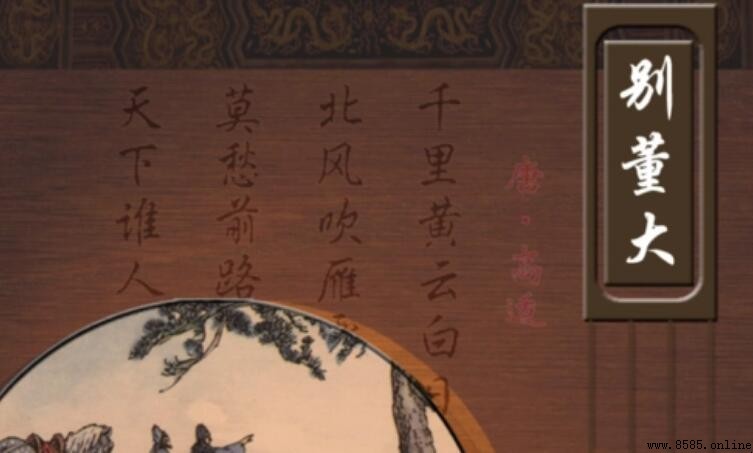 别董大
唐·高适
千里黄云白日
北风吹雁
莫愁前路
天下谁人
www.8585.online